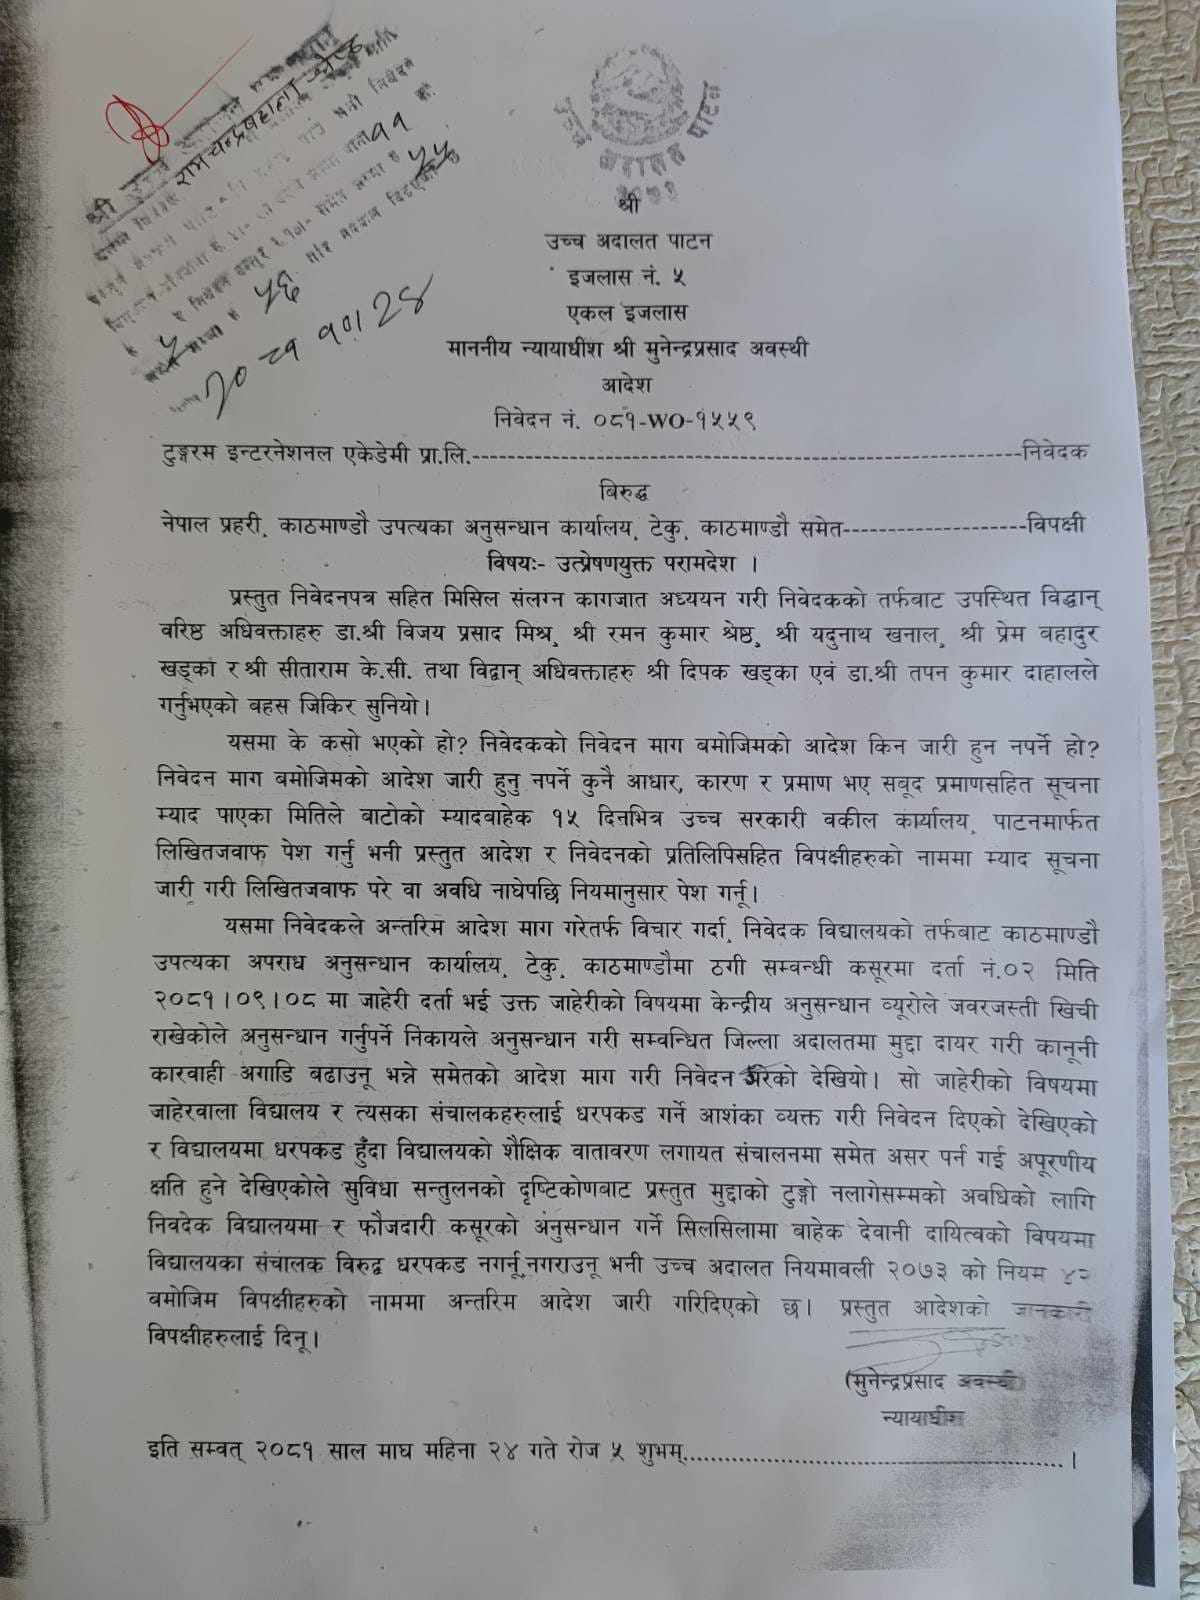 उच्च अदालत पाटन
श्री उच्च
रामचन्द्रबहादुर
११
५५
५६
५
२०८१।१०।२४
श्री
उच्च अदालत पाटन
इजलास नं. ५
एकल इजलास
माननीय न्यायाधीश श्री मुनेन्द्रप्रसाद अवस्थी
आदेश
निवेदन नं. ०८१-WO-१५५९
टुङ्गरम इन्टरनेशनल एकेडेमी प्रा.लि.------------------------------------------------------------निवेदक
विरुद्ध
नेपाल प्रहरी, काठमाण्डौ उपत्यका अनुसन्धान कार्यालय, टेकु, काठमाण्डौ समेत--------------------विपक्षी
विषयः- उत्प्रेषणयुक्त परामदेश ।
प्रस्तुत निवेदनपत्र सहित मिसिल संलग्न कागजात अध्ययन गरी निवेदकको तर्फबाट उपस्थित विद्धान्
वरिष्ठ अधिवक्ताहरु डा.श्री विजय प्रसाद मिश्र, श्री रमन कुमार श्रेष्ठ, श्री यदुनाथ खनाल, श्री प्रेम बहादुर
खड्का र श्री सीताराम के.सी. तथा विद्वान् अधिवक्ताहरु श्री दिपक खड्का एवं डा.श्री तपन कुमार दाहालले
गर्नुभएको बहस जिकिर सुनियो।
यसमा के कसो भएको हो? निवेदकको निवेदन माग बमोजिमको आदेश किन जारी हुन नपर्ने हो?
निवेदन माग बमोजिमको आदेश जारी हुनु नपर्ने कुनै आधार, कारण र प्रमाण भए सबूद प्रमाणसहित सूचना
म्याद पाएका मितिले बाटोको म्यादबाहेक १५ दिनभित्र उच्च सरकारी वकील कार्यालय, पाटनमार्फत
लिखितजवाफ पेश गर्नु भनी प्रस्तुत आदेश र निवेदनको प्रतिलिपिसहित विपक्षीहरुको नाममा म्याद सूचना
जारी गरी लिखितजवाफ परे वा अवधि नाघेपछि नियमानुसार पेश गर्नू।
यसमा निवेदकले अन्तरिम आदेश माग गरेतर्फ विचार गर्दा, निवेदक विद्यालयको तर्फबाट काठमाण्डौ
उपत्यका अपराध अनुसन्धान कार्यालय, टेकु, काठमाण्डौमा ठगी सम्वन्धी कसूरमा दर्ता नं.०२ मिति
२०८१।०९।०८ मा जाहेरी दर्ता भई उक्त जाहेरीको विषयमा केन्द्रीय अनुसन्धान व्यूरोले जवरजस्ती खिची
राखेकोले अनुसन्धान गर्नुपर्ने निकायले अनुसन्धान गरी सम्वन्धित जिल्ला अदालतमा मुद्दा दायर गरी कानूनी
कारवाही अगाडि बढाउनू भन्ने समेतको आदेश माग गरी निवेदन परेको देखियो। सो जाहेरीको विषयमा
जाहेरवाला विद्यालय र त्यसका संचालकहरुलाई धरपकड गर्ने आशंका व्यक्त गरी निवेदन दिएको देखिएको
र विद्यालयमा धरपकड हुँदा विद्यालयको शैक्षिक वातावरण लगायत संचालनमा समेत असर पर्न गई अपूरणीय
क्षति हुने देखिएकोले सुविधा सन्तुलनको दृष्टिकोणबाट प्रस्तुत मुद्दाको टुङ्गो नलागेसम्मको अवधिको लागि
निवदेक विद्यालयमा र फौजदारी कसूरको अनुसन्धान गर्ने सिलसिलामा बाहेक देवानी दायित्वको विषयमा
विद्यालयका संचालक विरुद्व धरपकड नगर्नू,नगराउनू भनी उच्च अदालत नियमावली २०७३ को नियम ४२
बमोजिम विपक्षीहरुको नाममा अन्तरिम आदेश जारी गरिदिएको छ। प्रस्तुत आदेशको जानकारी
विपक्षीहरुलाई दिनू।
(मुनेन्द्रप्रसाद अवस्थी)
न्यायाधीश
इति सम्वत् २०८१ साल माघ महिना २४ गते रोज ५ शुभम्............................................................।